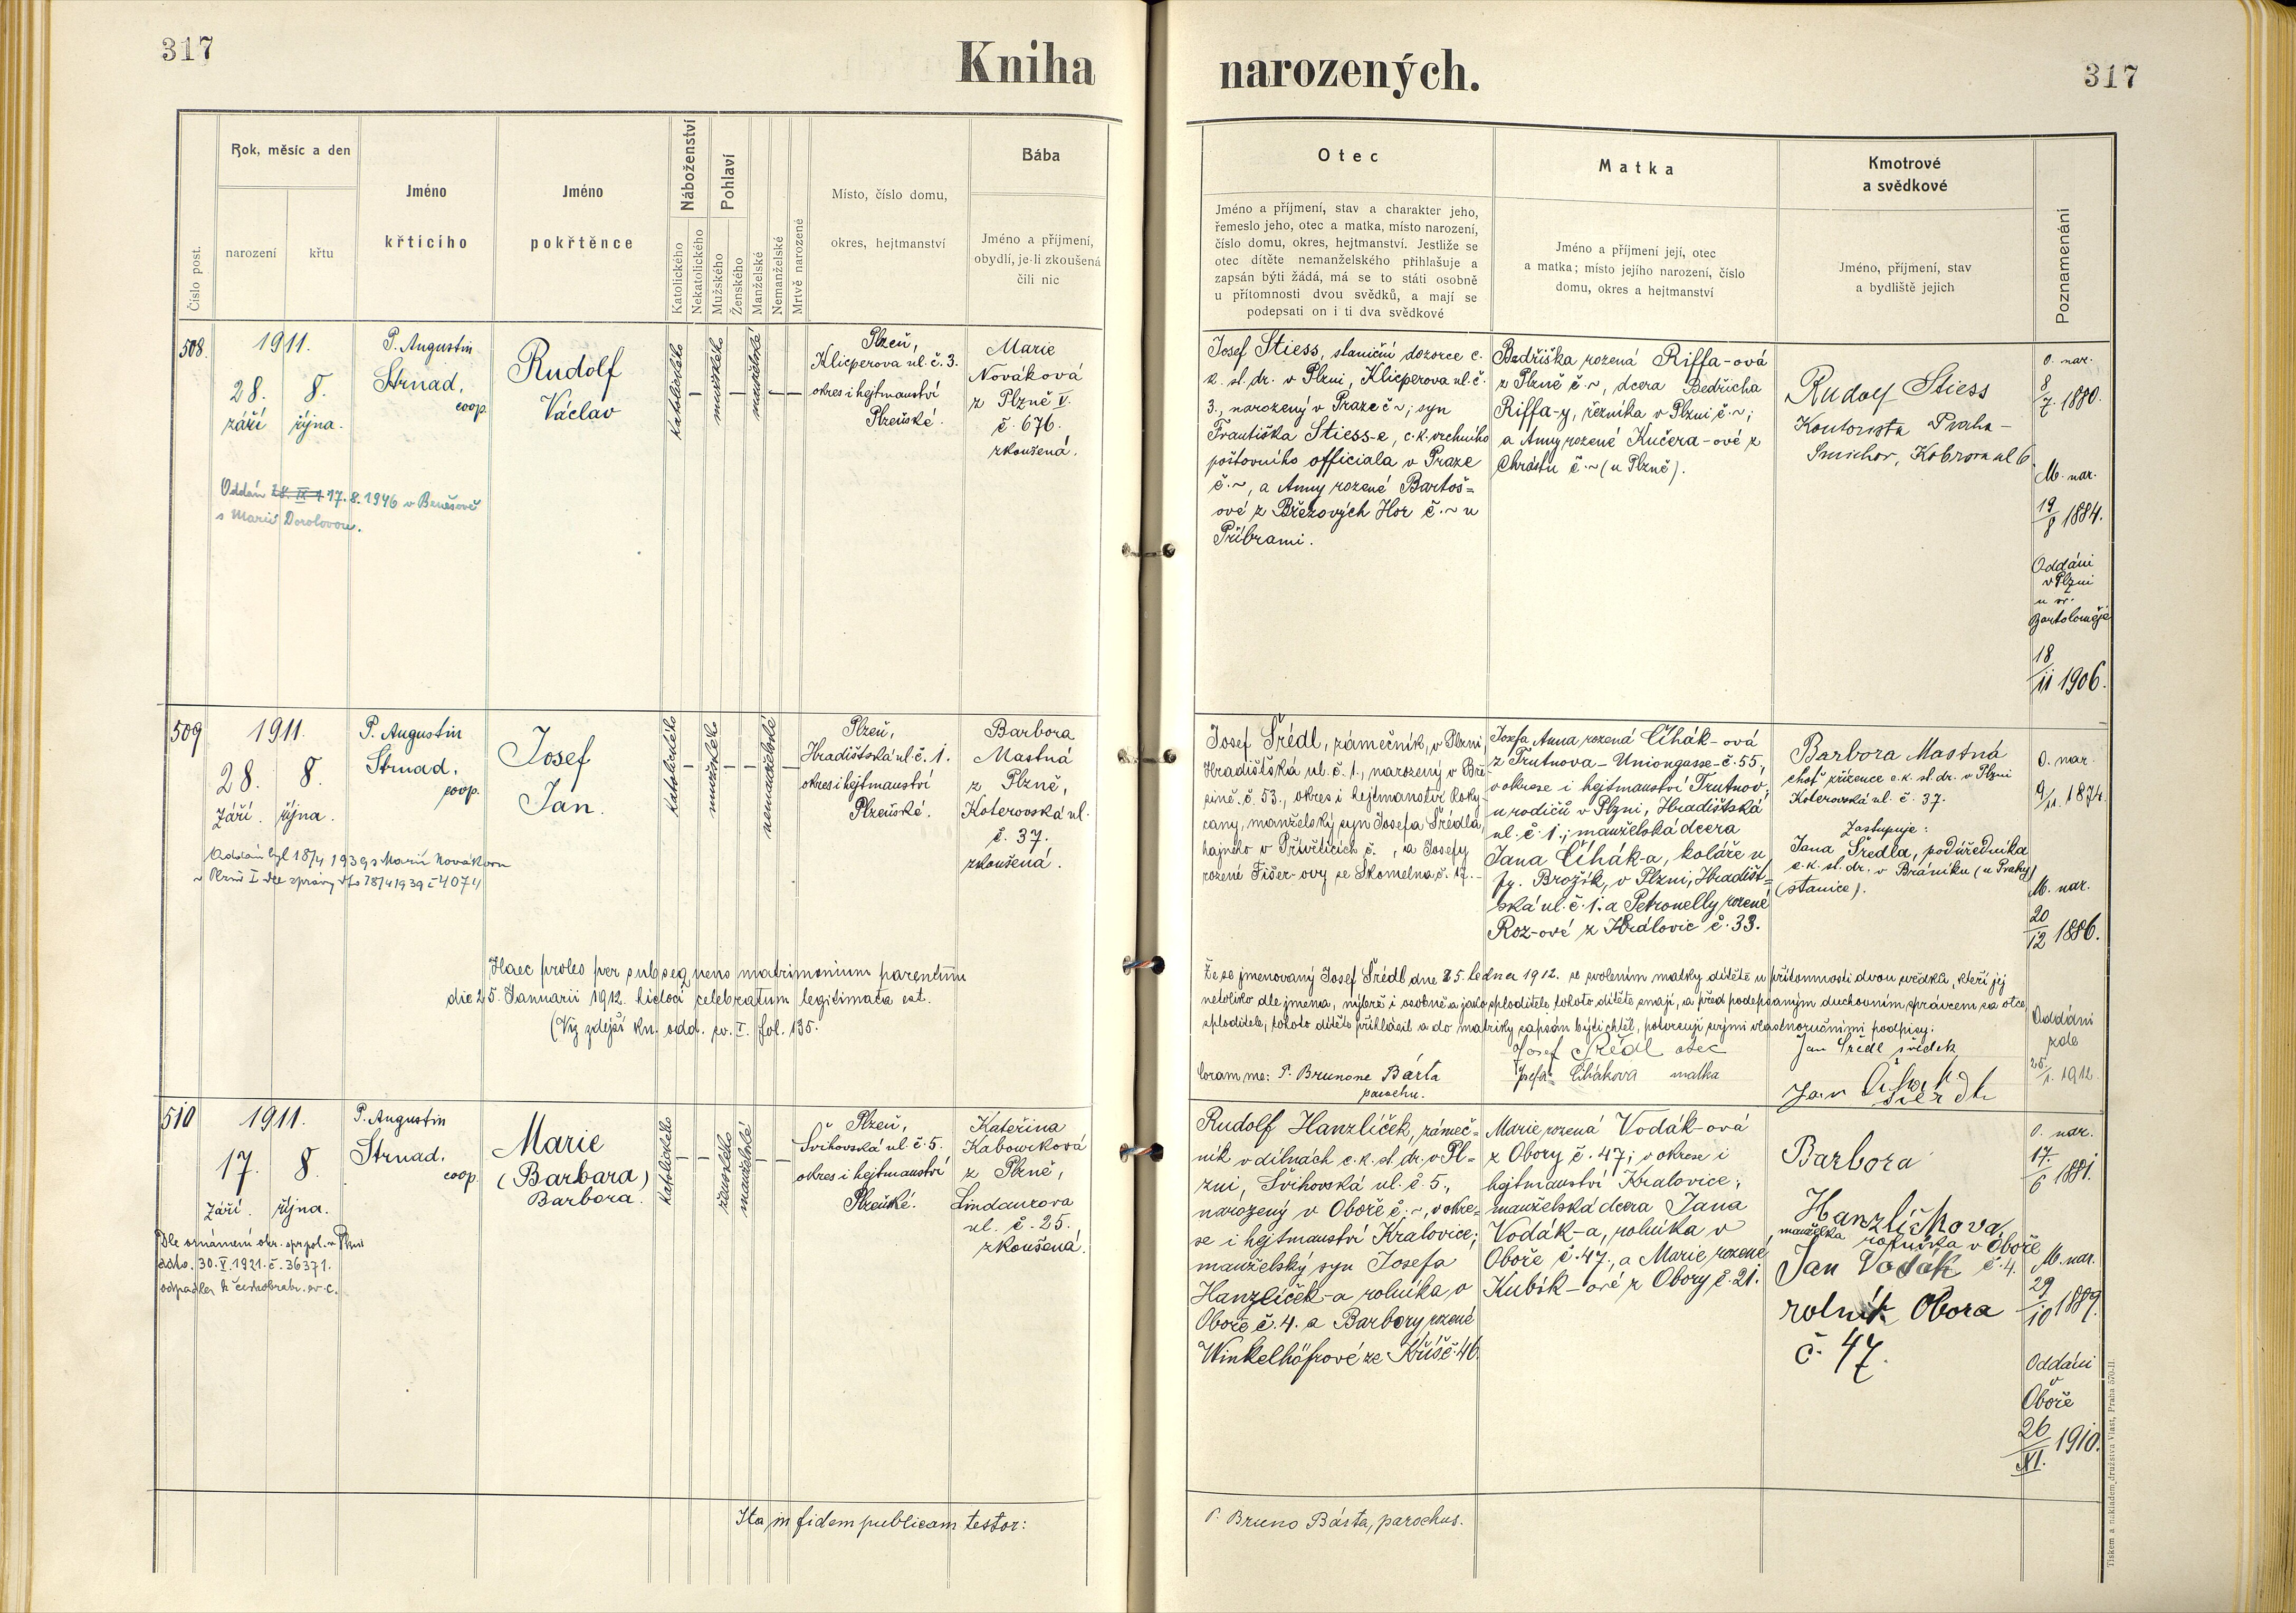 317
Kniha
narozených.
317
Číslo post.
Rok, měsíc a den
narození
křtu
Jméno
křticího
Jméno
pokřtěnce
Náboženství
Katolického
Nekatolického
Pohlaví
Mužského
Ženského
Manželské
Nemanželské
Mrtvě narozené
Místo, číslo domu,
okres, hejtmanství
Bába
Jméno a příjmení,
obydlí, je-li zkoušená
čili nic
Otec
Jméno a příjmení, stav a charakter jeho,
řemeslo jeho, otec a matka, místo narození,
číslo domu, okres, hejtmanství. Jestliže se
otec dítěte nemanželského přihlašuje a
zapsán býti žádá, má se to státi osobně
u přítomnosti dvou svědků, a mají se
podepsati on i ti dva svědkové
Matka
Jméno a příjmení její, otec
a matka; místo jejího narození, číslo
domu, okres a hejtmanství
Kmotrové
a svědkové
Jméno, příjmení, stav
a bydliště jejich
Poznamenání
508.
1911.
28. 8.
září října.
P. Augustin
Strnad,
coop.
Rudolf
Václav
katolického
mužského
manželské
Plzeň,
Klicperova ul. č. 3.
okres i hejtmanství
Plzeňské.
Marie
Nováková
z Plzně V.
č. 676.
zkoušená.
Oddán 28. IX 1 17. 8. 1946 v Benešově
s Marií Dorolovou.
Josef Stiess, staniční dozorce c.
k. st. dr. v Plzni, Klicperova ul. č.
3., narozený v Praze č ~; syn
Františka Stiess-e, c. k. vrchního
poštovního officiala v Praze
č. ~, a Anny rozené Bartoš=
ové z Březových Hor č. ~ u
Příbrami.
Bedřiška rozená Riffa-ová
z Plzně č ~, dcera Bedřicha
Riffa-y, řezníka v Plzni č. ~;
a Anny rozené Kučera-ové z
Chrástu č. ~ (u Plzně).
Rudolf Stiess
Kontorista Praha-
Smichov, Kobrova ul 6
O. nar.
8/7. 1880.
M. nar.
19/8 1884.
Oddáni
v Plzni
u sv.
Bartoloměje
18/II 1906.
509
1911.
28. 8.
Září. října.
P. Augustin
Strnad.
coop.
Josef
Jan.
katolického
mužského
nemanželské
Plzeň,
Hradištská ul. č. 1.
okres i hejtmanství
Plzeňské.
Barbora
Mastná
z Plzně,
Koterovská ul.
č. 37.
zkoušená.
Oddán byl 18/4 1939 s Marií Novákovou
v Plzni I dle zprávy dto 18/4 1939 č 4074
Haec proles per subseqnens matrimonium parentum
die 25. Januarii 1912. hicloci celebratum legitimata est.
(Viz zdejší kn. odd. sv. I. fol. 135.
Josef Šrédl, zámečník, v Plzni,
Hradištská ul. č. 1., narozený v Bře
zině. č. 53., okres i hejtmanství Roky
cany, manželský syn Josefa Šrédla,
hajného v Přívěticích č. , a Josefy
rozené Fišer-ovy ze Skomelna č. 17.
Josefa Anna rozená Čihák-ová
z Trutnova - Uniongasse - č. 55,
v okrese i hejtmanství Trutnov;
u rodičů v Plzni, Hradištská
ul. č. 1.; manželská dcera
Jana Čihák-a, koláře u
fy. Brožík, v Plzni, Hradišt=
ská ul. č. 1. a Petronelly rozené
Roz-ové z Křdlovic č. 33.
Barbora Mastná
choť zřízence c. k. st. dr. v Plzni
Koterovská ul. č. 37.
Zastupuje:
Jana Šrédla, podúředníka
c. k. st. dr. v Bráníku (u Prahy)
(stanice).
O. nar.
9/11. 1874.
M. nar.
20/12 1886.
Že se jmenovaný Josef Šrédl dne 25. ledna 1912. se svolením matky dítěte u přítomnosti dvou svědků, kteří jej
netoliko dle jména, nýbrž i osobně a jako sploditele tohoto dítěte znají, a před podepsaným duchovním správcem za otce,
sploditele, tohoto dítěte přihlásil a do matriky zapsán býti chtěl, potvrzují svými vlastnoručními podpisy:
Josef Šrédl otec
Jan Šrédl svědek
Coram me: P. Brunone Bárta
parocho.
Josefa Čiháková matka
Jan Čihák
Oddáni
zde
25/1. 1912.
510
1911.
17. 8.
Září. října.
P. Augustin
Strnad.
coop.
Marie
(Barbara)
Barbora.
katolického
ženského
manželské
Plzeň,
Švihovská ul. č. 5.
okres i hejtmanství
Plzeňské.
Kateřina
Kabourková
z Plzně,
Lindaurova
ul. č. 25.
zkoušená.
Dle oznámení okr. spr. pol. v Plzni
ddto. 30. V. 1921. č. 36371.
odpadla k českobratr. ev. c.
Rudolf Hanzlíček, zámeč=
ník v dílnách c. k. st. dr. v Pl=
zni, Švihovská ul. č 5.,
narozený v Oboře č. ~, v okre=
se i hejtmanství Kralovice;
manželský syn Josefa
Hanzlíček-a rolníka v
Oboře č. 4. a Barbory rozené
Winkelhöfrové ze Kříš č. 46.
Marie rozená Vodák-ová
z Obory č. 47; v okrese i
hejtmanství Kralovice;
manželská dcera Jana
Vodák-a, rolníka v
Oboře č. 47., a Marie rozené
Kubík-ové z Obory č. 21.
Barbora
Hanzlíčkova,
manželka rolníka v Oboře
č. 4.
Jan Vodák
rolník Obora
č. 47.
O. nar.
17./6 1881.
M. nar.
29/10 1889.
Oddáni
v
Oboře
26/XI. 1910.
Ita in fidem publicam testor:
P. Bruno Bárta, parochus.
Tiskem a nákladem družstva Vlast, Praha 570-II.